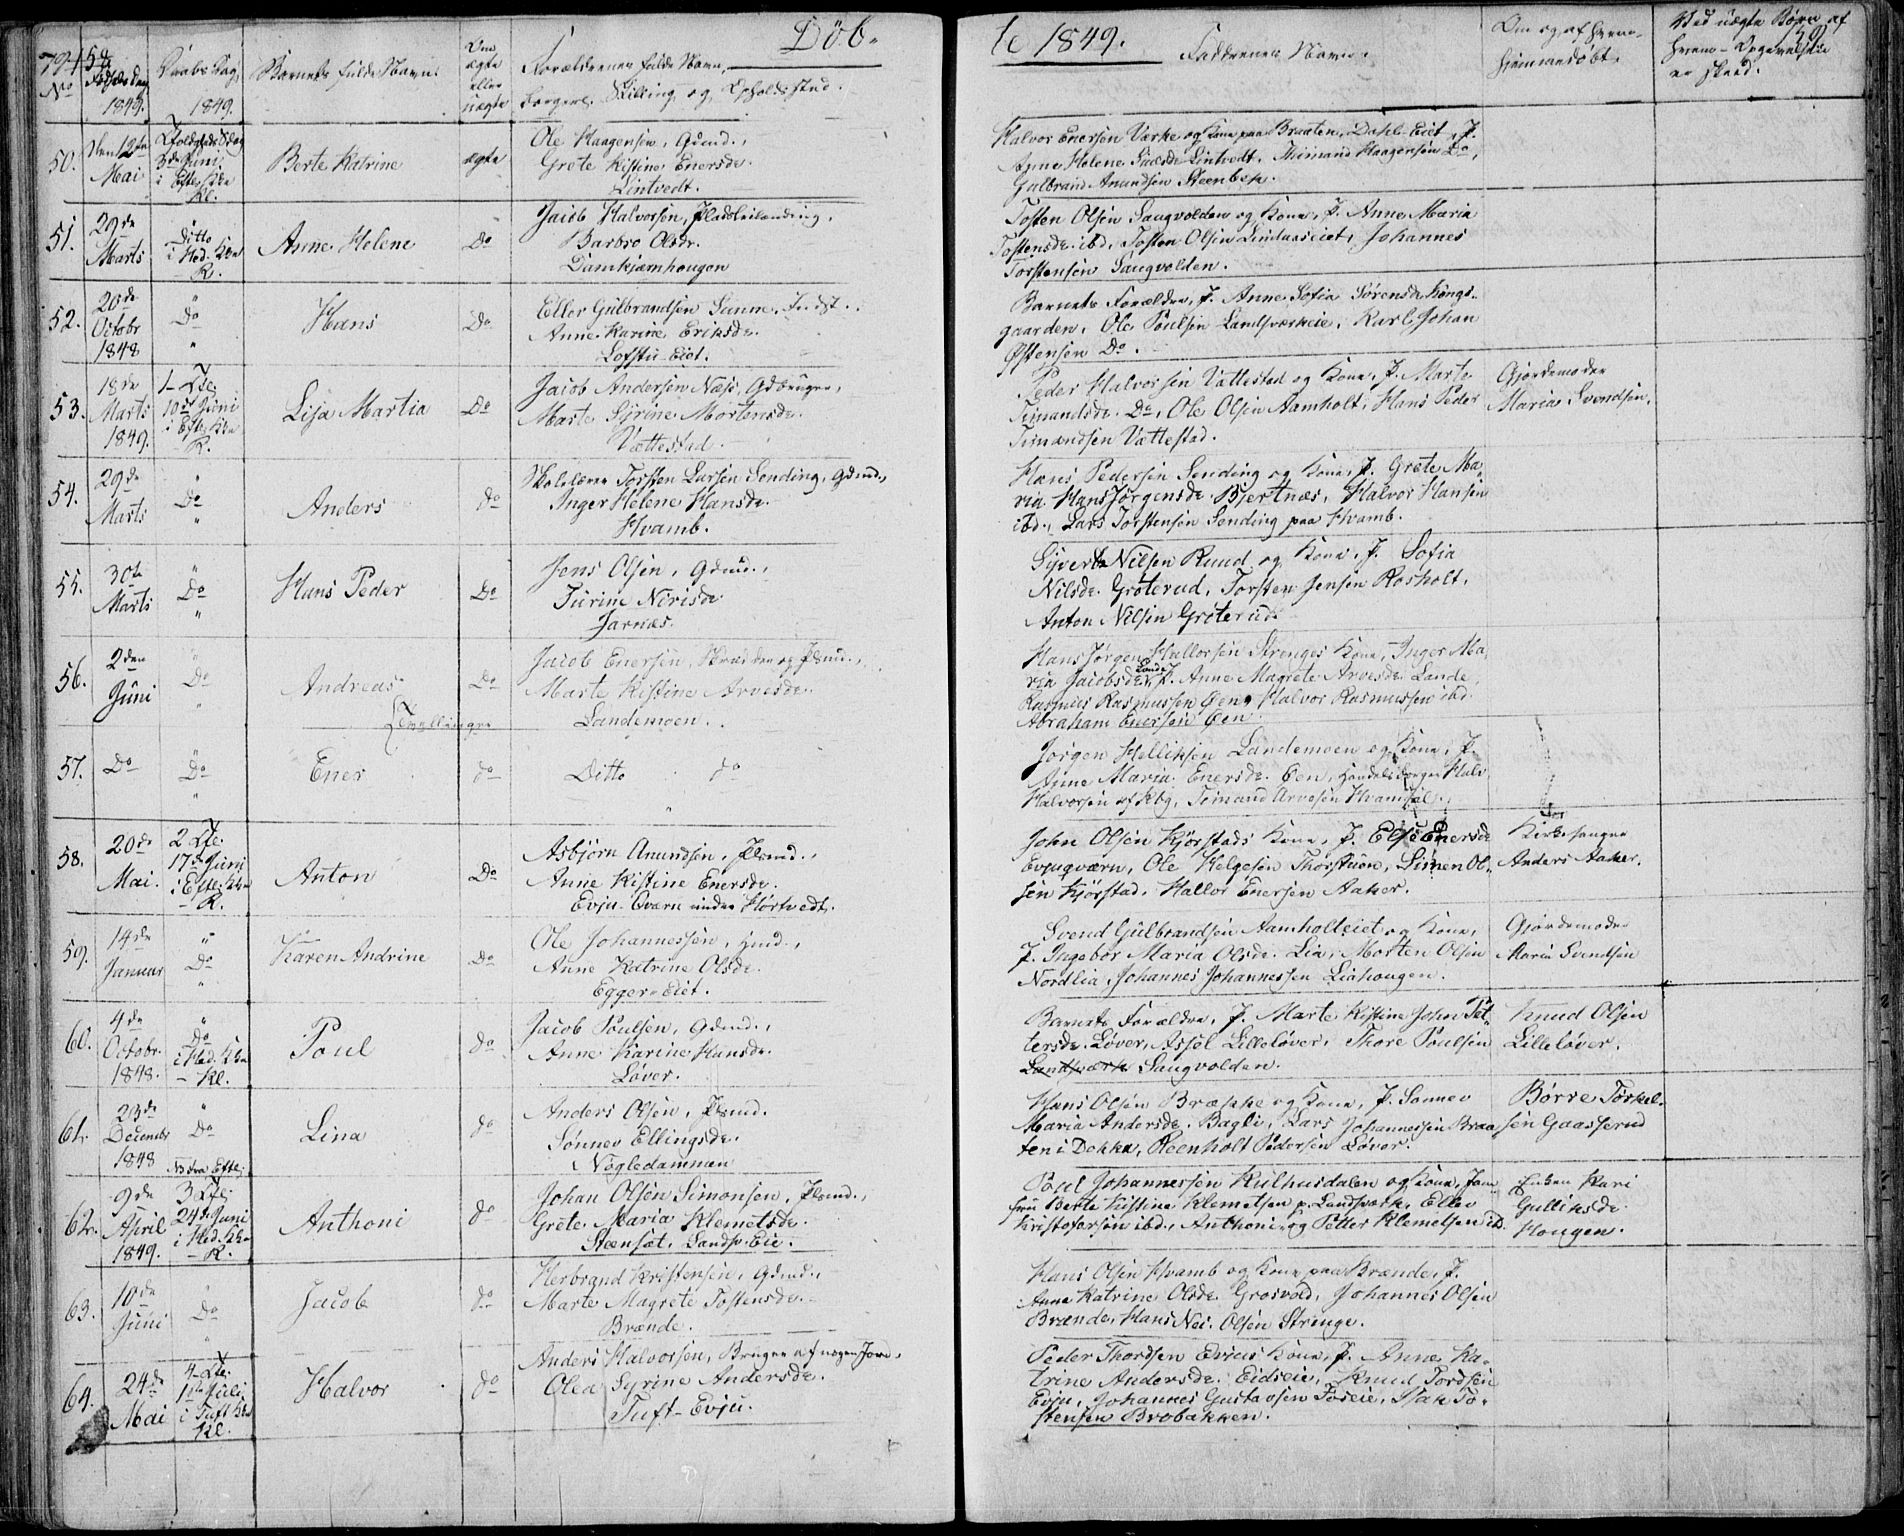 Döb-
te 1849.
No
Fødselsdag 1849.
Daabs Dag 1849.
Barnets fulde Navn.
Om ægte eller uægte
Forældrenes fulde Navn, borgerl. Stilling og Opholdssted.
Faddernes Navne.
Om og af hvem hjemmedøbt.
Ved uægte Børn af
50. Den 12te Mai
3die Juni
Berte Katrine
ægte
Ole Haagensen, Gdmd.,
Grete Kistine Enersdr.
Lintvedt.
Halvor Enersen Værke og Kone paa Braaten, Dahl-Eiet, P.
Anne Helene Lintvedt, Thimand Haagensen Do,
Gulbrand Amundsen Steenbek.
51. 29de Marts
Ditto i Hed. Kke R.
Anne Helene
Do
Jacob Halvorsen,
Barbro Olsdr.
Damkjærnhougen
Tosten Olsen Saugvolden og Kone, P. Anne Maria
Tostensdr. ibd, Tosten Olsen Lindaaseiet, Johannes
Torstensen Saugvolden.
52. 20de Octobr 1848
Do
Hans
Do
Ellef Gulbrandsen Sanne, Indst.
Anne Karine Eriksdr.
Lofstu-Eiet.
Barnets Forældre, P. Anne Sofia Sørensdr Kongs-
gaarden, Ole Poulsen Landsværkeie, Karl Johan
Østensen Do.
53. 18de Marts 1849.
10de Juni
Lisa Martia
Do
Jacob Andersen Næss, Gdbruger,
Marte Syrine Mortensdr.
Vættestad.
Peder Halvorsen Vattestad og Kone, P. Marte
Timandsdr. Do, Ole Olsen Aamholt, Hans Peder
Timandsen Vættestad.
Gjordemoder
Maria Svendsen.
54. 29de Marts
Do
Anders
do
Skolelærer Torsten Larsen Sending, Gdmd.,
Inger Helene Hansdr.
Hvamb.
Hans Pedersen Sending og Kone, P. Grete Ma-
ria Hans Jörgensdr Bjertnæs, Halvor Hansen
ibd., Lars Torstensen Sending paa Hvamb.
55. 30te Marts
Do
Hans Peder
Do
Jens Olsen, Gdmd.,
Turine Nirisdr
Jarnæs.
Syvert Nilsen Ruud og Kone, P. Sofia
Nilsdr. Groterud, Torsten Jensen Rosholt,
Anton Nilsen Groterud.
56. 2den Juni
Do
Andreas
Tvillinger
Do
Jacob Enersen, Skrædder og Plsmd.,
Marte Kistine Arvesdr.
Landemoen.
Hans Jørgen Hallorsen Strenges Kone, Inger Ma-
ria Jacobsdr Lande, P. Anne Magrete Arvesdr. Lande,
Rasmus Rasmussen Øen, Halvor Rasmussen ibd
Abraham Enersen Øen.
57. Do
Do
Ener
do
Ditto do
Jørgen Helliksen Landemoen og Kone, P.
Anne Maria Enersdr. Øen, Handelsborger Halv.
Halvorsen af Kbg, Timand Arvesen Hvamsal.
58. 20de Mai.
17de Juni
Anton
Do
Asbjörn Amundsen, Plsmd.,
Anne Kistine Enersdr.
Evju-Qværn under Hortvedt.
John Olsen Kjörstads Kone, P. Else Enersdr
Evjuqværn, Ole Helgesen Thorstuen, Simen Ol-
sen Kjörstad, Hallor Enersen Aaker.
Kirkesanger
Anders Aaker.
59. 14de Januar
Do
Karen Andrine
Do
Ole Johannessen, Hmd.,
Anne Katrine Olsdr.
Egger-Eiet.
Svend Gulbrandsen Aamholteiet og Kone,
P. Ingebor Maria Olsdr. Lia, Morten Olsen
Nordlia, Johannes Johannessen Liahougen.
Gjordemoder
Maria Svendsen
60. 4de Octobr. 1848.
Do i Hed. Kke - Kl.
Poul
do
Jacob Poulsen, Gdmd.,
Anne Karine Hansdr.
Løver.
Barnets Forældre, P. Marte Kistine John Pet-
tersdr. Løver, Assel Lilleløver, Thore Poulsen
Saugvolden.
Knud Olsen
Lilleløver.
61. 23de Decembr 1848
Do
Lina
do
Anders Olsen, Plsmd.
Sønnev Ellingsdr.
Nøgledammen
Hans Olsen Bræske og Kone, P. Sønnev
Maria Andersdr. Bagli, Lars Johannessen Braa-
ten i Dokka, Reenholt Pedersen Løver.
Børre Torkel-
sen Gaasserud
62. 9de April 1849.
24de Juni i Hed. Kke - R.
Anthoni
do
Johan Olsen Simonsen, Plsmd.,
Grete Maria Klemetsdr.
Steensæt, Landsv. Eie.
Poul Johannessen Kulhusdalen og Kone, Jom-
fru Berte Kistine Klemetsen p. Landsværk, Ellev
Kristofersen ibd., Anthoni og Petter Klemetsen ibd.
Enken Kari
Gulliksdr.
Hougen.
63. 10de Juni
Do
Jacob
do
Herbrand Kristensen, Gdmd.,
Marte Magrete Tostensdr.
Brænde.
Hans Olsen Hvamb og Kone paa Brænde, P.
Anne Katrine Olsdr. Grosvold, Johannes Olsen
Brænde, Hans Nei. Olsen Strenge.
64. 24de Mai
1ste Juli i Tuft Kke Kl.
Halvor
do
Anders Halvorsen, Bruger af nogen Jord,
Olea Syrine Andersdr.
Tuft-Evju.
Peder Thordsen Evjus Kone, P. Anne Ka-
trine Andersdr. Eidseie, Knud Tordsen
Evju, Johannes Gustavsen Foseie, Isak To-
stensen Brobakken.